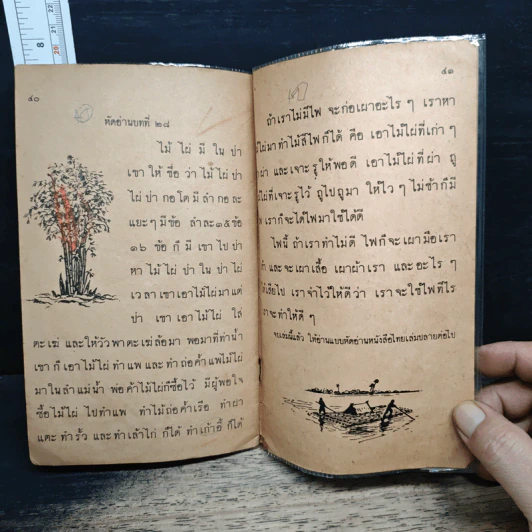 ๔๐
หัดอ่านบทที่ ๒๘
ไม้ ไผ่ มี ใน ป่า
เขา ให้ ชื่อ ว่า ไม้ ไผ่ ป่า
ไผ่ ป่า กอ โต มี ลำ กอ ละ
แยะ ๆ มี ข้อ ลำ ละ ๑๕ ข้อ
๑๖ ข้อ ก็ มี เขา ไป ป่า
หา ไม้ ไผ่ ป่า ใน ป่า ไผ่
เวลา เขา เอา ไม้ ไผ่ มา แต่
ป่า เขา เอา ไม้ ไผ่ ใส่
ตะเฆ่ และ ให้ วัว พา ตะเฆ่ ล้อ มา พอ มา ที่ ท่า น้ำ
เขา ก็ เอา ไม้ ไผ่ ทำ แพ และ ทำ ถ่อ ค้า แพ ไม้ ไผ่
มา ใน ลำ แม่ น้ำ พ่อ ค้า ไม้ ไผ่ ก็ ซื้อ ไว้ มี ผู้ พอ ใจ
ซื้อ ไม้ ไผ่ ไป ทำ แพ ทำ ไม้ ถ่อ ค้ำ เรือ ทำ ฝา
แตะ ทำ รั้ว และ ทำ เล้า ไก่ ก็ ได้ ทำ เก้าอี้ ก็ ได้
๔๑
ถ้า เรา ไม่ มี ไฟ จะ ก่อ เผา อะไร ๆ เรา หา
ไม้ ไผ่ มา ทำ ไม้ สี ไฟ ก็ ได้ คือ เอา ไม้ ไผ่ ที่ เก่า ๆ
ผ่า และ เจาะ รู ให้ พอ ดี เอา ไม้ ไผ่ ที่ ผ่า ถู
ไม้ ไผ่ ที่ เจาะ รู ไว้ ถู ไป ถู มา ให้ ไว ๆ ไม่ ช้า ก็ มี
ไฟ เรา ก็ จะ ได้ ไฟ มา ใช้ ได้ ดี
ไฟ นี้ ถ้า เรา ทำ ไม่ ดี ไฟ ก็ จะ เผา มือ เรา
และ จะ เผา เสื้อ เผา ผ้า เรา และ อะไร ๆ
เรา จำ ไว้ ให้ ดี ว่า เรา จะ ใช้ ไฟ ที่ไร
เรา จะ ทำ ให้ ดี ๆ
จบเล่มนี้แล้ว ให้อ่านแบบหัดอ่านหนังสือไทยเล่มปลายต่อไป
8
20
21